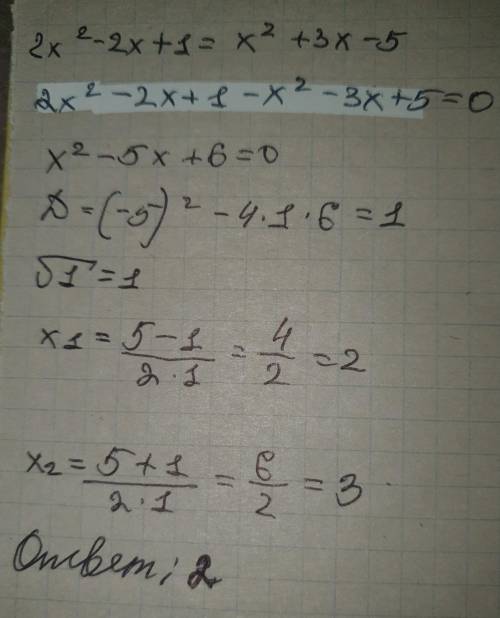 2x² - 2x + 1 = x² + 3x - 5
2x² - 2x + 1 - x² - 3x + 5 = 0
x² - 5x + 6 = 0
D = (-5)² - 4·1·6 = 1
√1 = 1
x1 = (5-1)/(2·1) = 4/2 = 2
x2 = (5+1)/(2·1) = 6/2 = 3
Ответ: 2